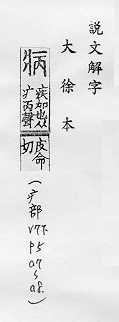 說文解字
大徐本
病
疾加也从
疒丙聲
皮命
切
(疒部
V7下
P5
a7
~
a8.)